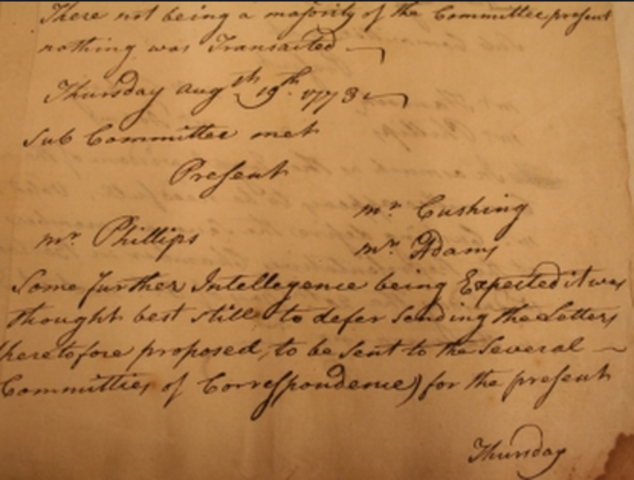 There not being a majority of the Committee present
nothing was Transacted
Thursday augsth 19th 1773
Sub Committee met
Present
mr Cushing
mr Phillips
mr Adams
Some further Intellegence being Expected it was
thought best still to defer sending the Letters
heretofore proposed, to be sent to the Several
Committies of Correspondence) for the present
Thursday